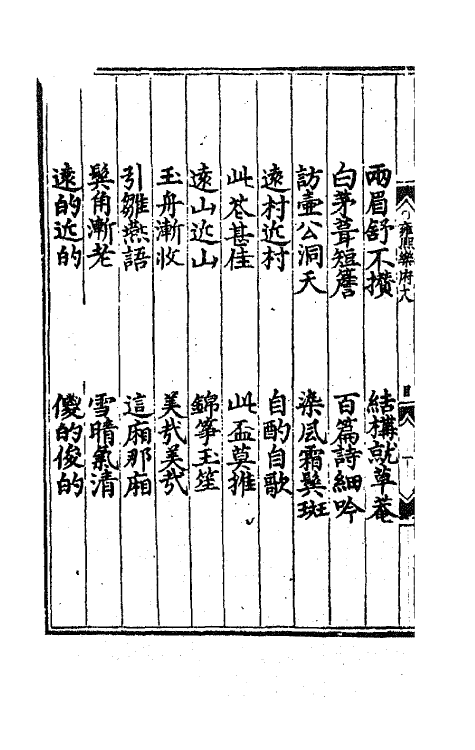 雍熙樂府大
目
兩眉舒不攢　結構就草菴
白茅葺短簷　百篇詩細吟
訪壷公洞天　染風霜鬂斑
遠村近村　自酌自歌
此荅甚佳　此盃莫推
遠山近山　錦筝玉笙
玉舟漸收　美哉美哉
引雛燕語　這廂那廂
鬂角漸老　雪晴氣清
遠的近的　傻的俊的